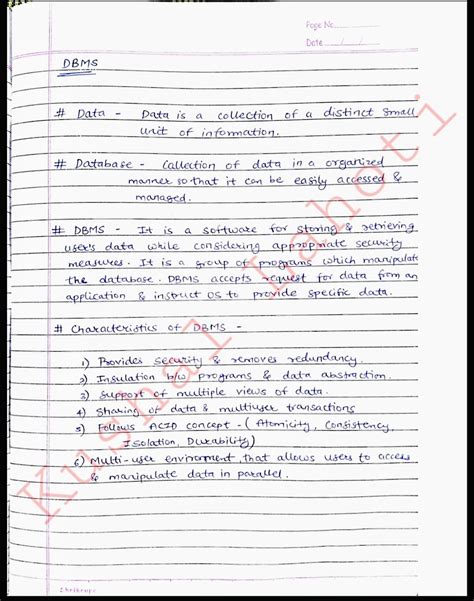 Page No.
Date / /
DBMS
# Data - Data is a collection of a distinct small
unit of information.
# Database - Collection of data in a organized
manner so that it can be easily accessed &
managed.
# DBMS - It is a software for storing & retrieving
user's data while considering appropriate security
measures. It is a group of programs which manipulate
the database. DBMS accepts request for data from an
application & instruct OS to provide specific data.
# Characteristics of DBMS -
1) Provides security & removes redundancy.
2) Insulation b/w programs & data abstraction.
3) Support of multiple views of data.
4) Sharing of data & multiuser transactions
5) Follows ACID concept - (Atomicity, Consistency,
Isolation, Durability)
6) Multi-user environment, that allows users to access
& manipulate data in parallel.
Kushal Lahoti